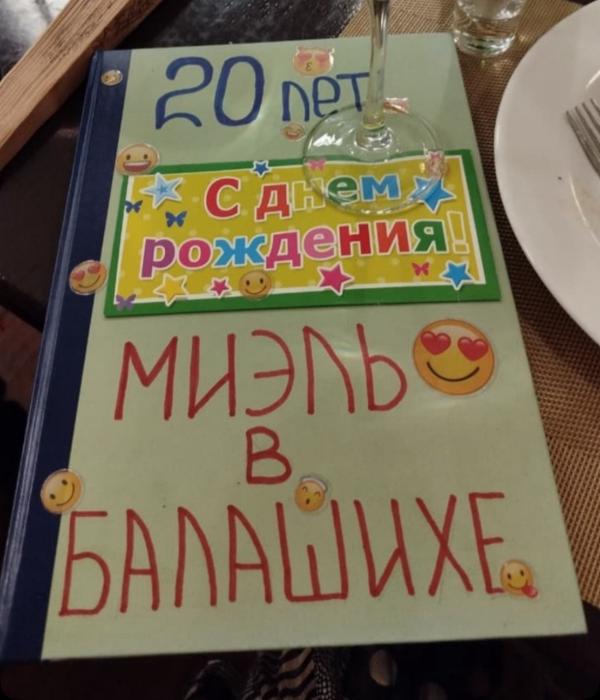 20 лет
С днем
рождения!
МИЭЛЬ
В
БАЛАШИХЕ